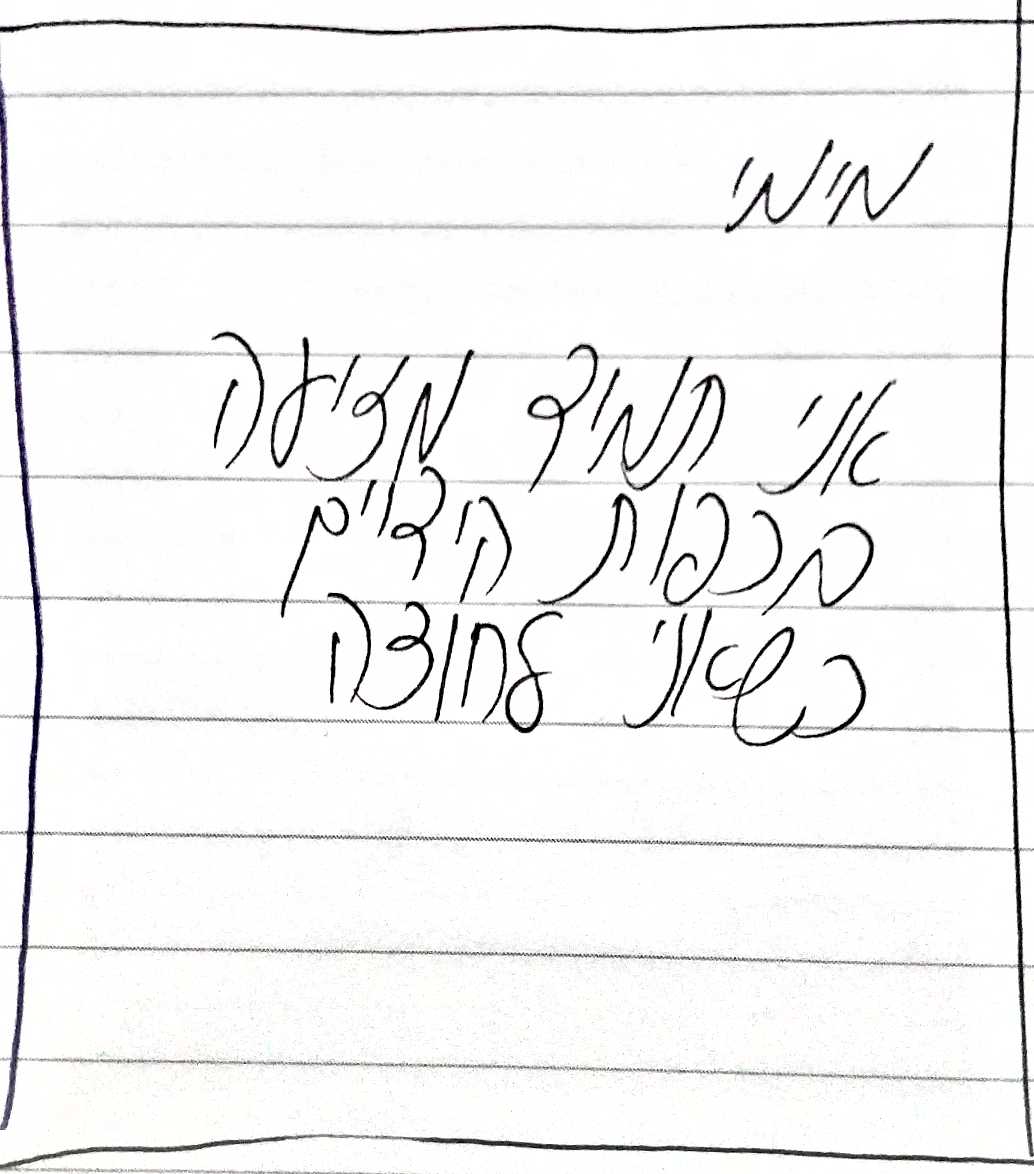 מימי
אני תמיד מזיעה
בכפות הידיים
כשאני לחוצה